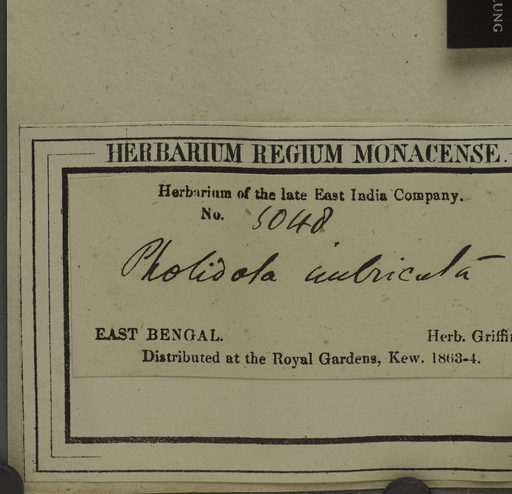 LUNG
HERBARIUM REGIUM MONACENSE.
Herbarium of the late East India Company.
No. 5048
Pholidota imbricata
EAST BENGAL. Herb. Griffi
Distributed at the Royal Gardens, Kew. 1863-4.